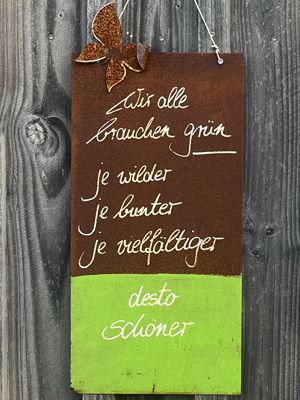 Wir alle
brauchen grün
je wilder
je bunter
je vielfältiger
desto
schöner